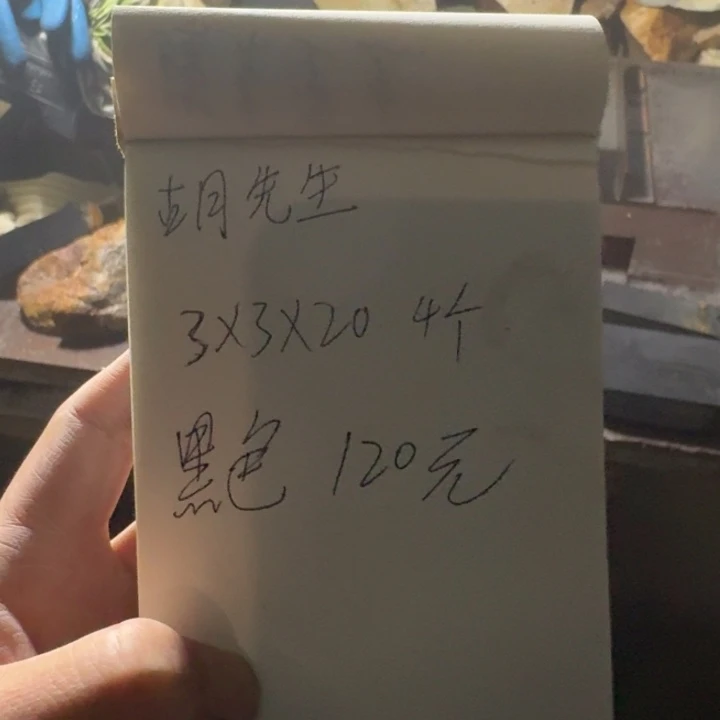 胡先生
3X3X20 4个
黑色 120元